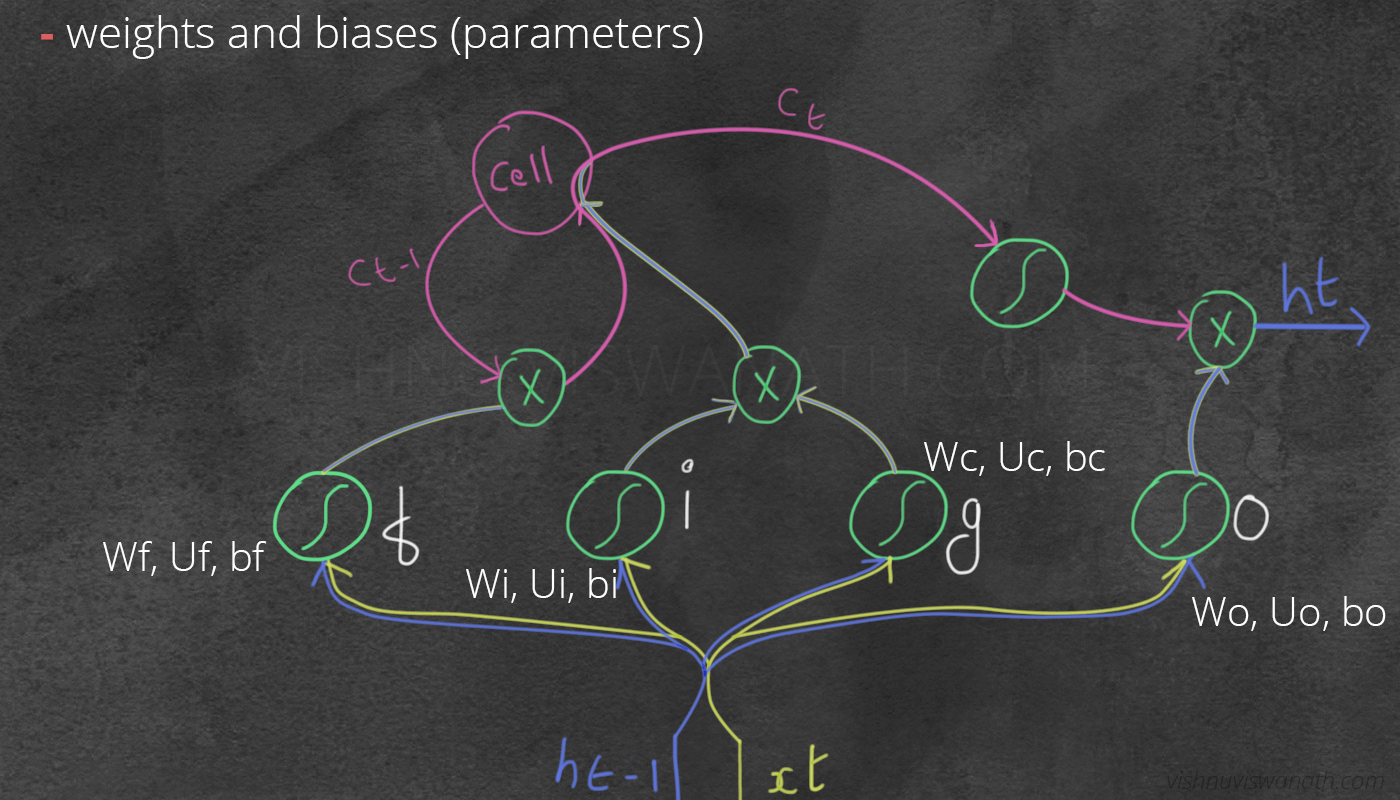 - weights and biases (parameters)
Ct
Cell
Ct-1
ht
X
X
X
Wc, Uc, bc
f
i
g
o
Wf, Uf, bf
Wi, Ui, bi
Wo, Uo, bo
ht-1
xt
vishnuviswanath.com